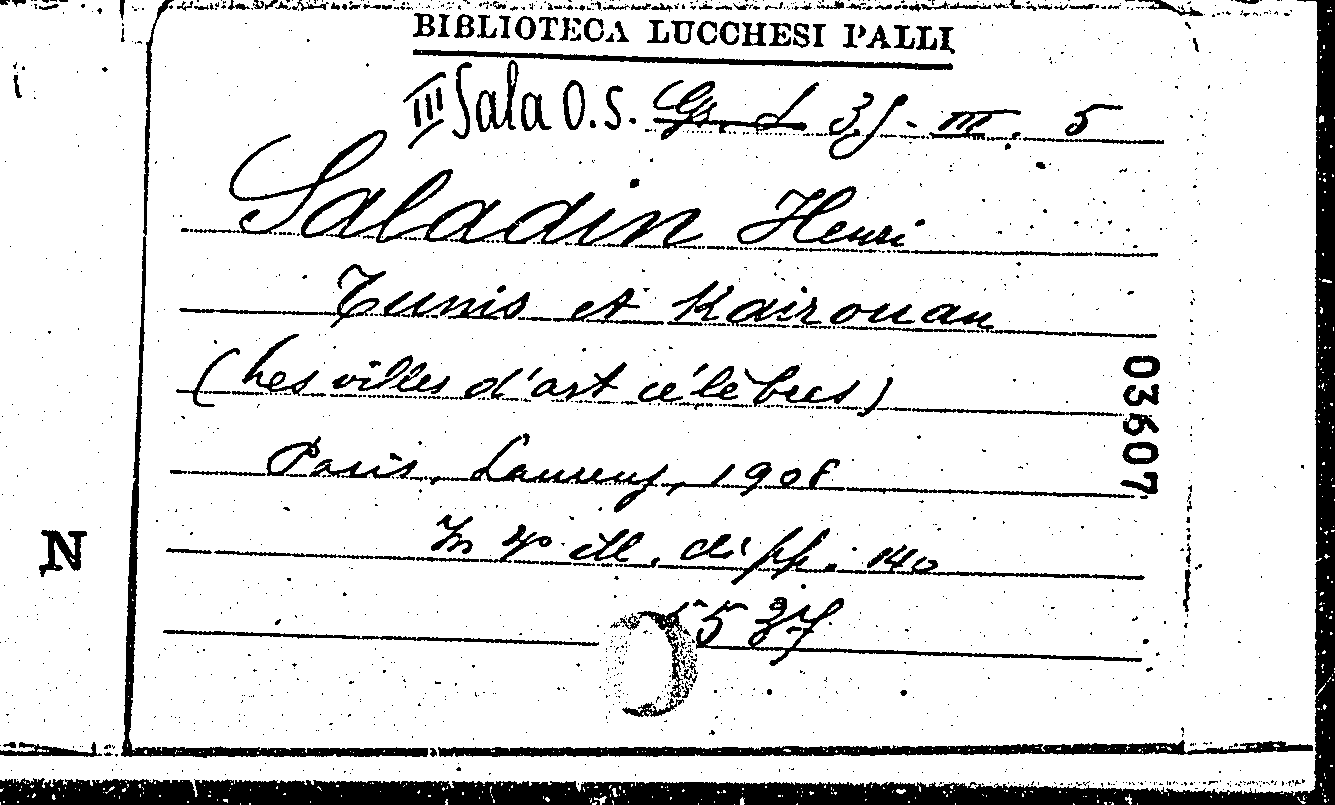 BIBLIOTECA LUCCHESI PALLI
III Sala O.S. Gr. L 35 - III. 5
Saladin Henri
Tunis et Kairouan
(Les villes d'art célèbres)
Paris, Laurens, 1908
In 4° ill. di pp. 140
5537
03607
N